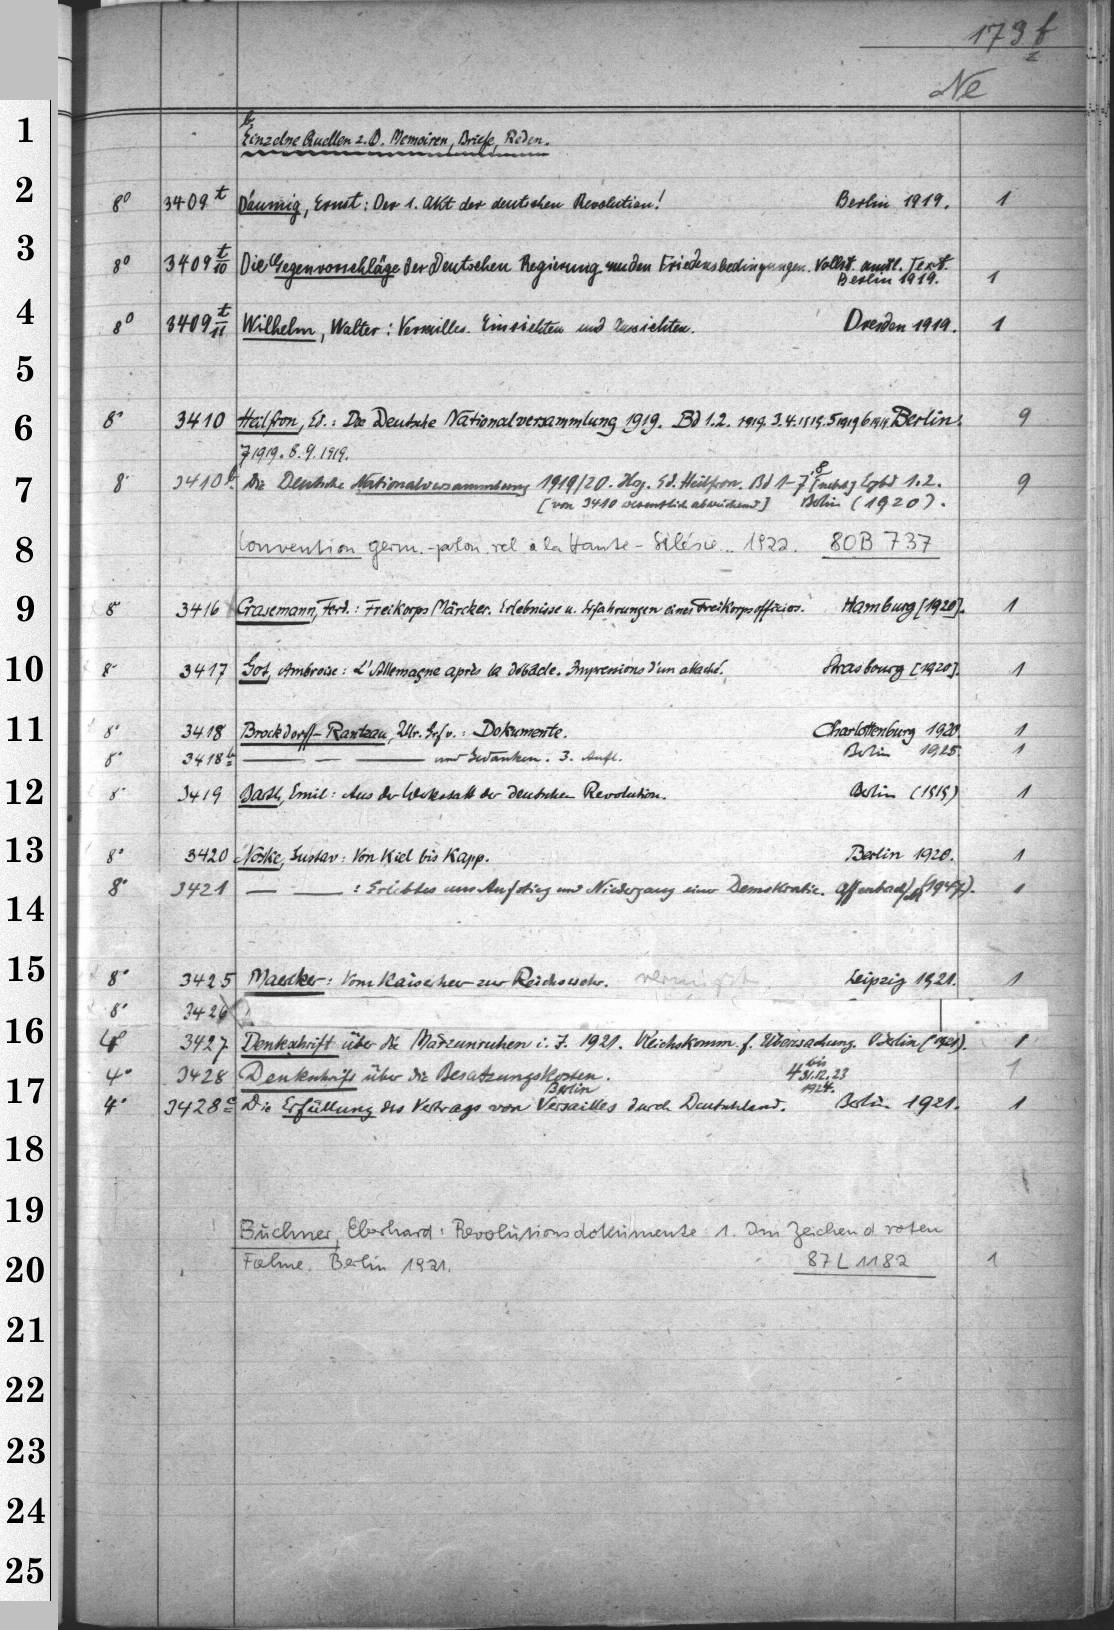 179 f
Ne
1
b,
Einzelne Quellen z. B. Memoiren, Briefe, Reden.
2
8° 3409 t Däumig, Ernst: Der 1. Akt der deutschen Revolution! Berlin 1919. 1
3
8° 3409 t/10 Die Gegenvorschläge der Deutschen Regierung zu den Friedensbedingungen. Vollst. amtl. Text.
Berlin 1919. 1
4
8° 3409 t/11 Wilhelm, Walter: Versailles. Einsichten und Aussichten. Dresden 1919. 1
5
6
8° 3410 Heilfron, Ed.: Die Deutsche Nationalversammlung 1919. Bd 1.2. 1919. 3.4. 1919. 5 1919 6 1919 Berlin. 9
7 1919. 8. 9. 1919.
7
8° 3410 b. Die Deutsche Nationalversammlung 1919/20. Hrg. Ed. Heilfron. Bd 1-7, 8 [nebst] Egbd 1.2. 9
[von 3410 wesentlich abweichend] Berlin (1920).
8
Convention germ.-polon. rel à la Haute-Silésie.. 1922. 80B 737
9
8° 3416 Crasemann, Ferd.: Freikorps Märcker. Erlebnisse u. Erfahrungen eines Freikorpsofficiers. Hamburg [1920]. 1
10
8° 3417 Got, Ambroise: L'Allemagne après la débâcle. Impressions d'un attaché. Strasbourg [1920]. 1
11
8° 3418 Brockdorff-Rantzau, Ulr. Grf v.: Dokumente. Charlottenburg 1920. 1
8° 3418 b — — — und Gedanken. 3. Aufl. Berlin 1925. 1
12
8° 3419 Barth, Emil: Aus der Werkstatt der deutschen Revolution. Berlin (1919) 1
13
8° 3420 Noske, Gustav: Von Kiel bis Kapp. Berlin 1920. 1
14
8° 3421 — — : Erlebtes aus Aufstieg und Niedergang einer Demokratie. Offenbach/M (1947). 1
15
8° 3425 Maercker: Vom Kaiserheer zur Reichswehr. Leipzig 1921. 1
8° 3426
16
4° 3427 Denkschrift über die Märzunruhen i. J. 1921. Reichskomm. f. Überwachung. Berlin (1921). 1
4° 3428 Denkschrift über die Besatzungskosten. 4 bis 31.12.23 1
17
Berlin 1924.
4° 3428 a Die Erfüllung des Vertrags von Versailles durch Deutschland. Berlin 1921. 1
18
19
Buchner, Eberhard: Revolutionsdokumente 1. Im Zeichen d roten
20
Fahne. Berlin 1921. 87 L 1182 1
21
22
23
24
25